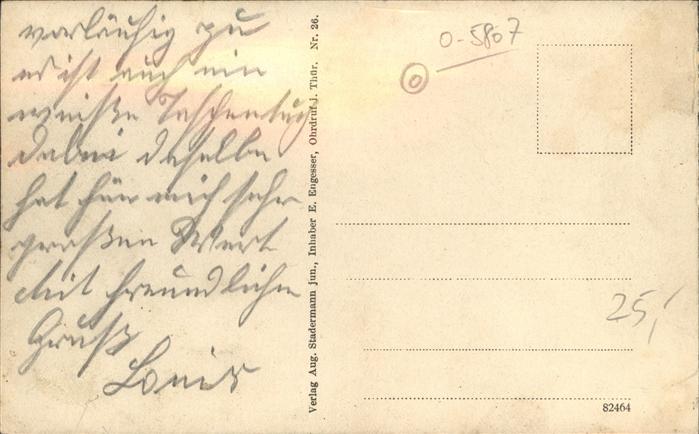 vorläufig zu
es ist auch ein
weißes Taschentuch
dabei daselbe
hat für mich sehr
großen Wert
Mit freundlichen
Gruß
Louis
Verlag Aug. Stadermann jun., Inhaber E. Engesser, Ohrdruf i. Thür. Nr. 26.
0-5807
25,-
82464